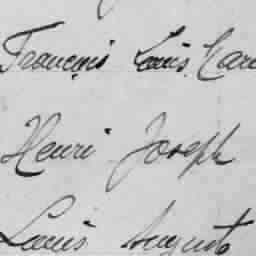 François Louis Mari
Henri Joseph
Louis Auguste